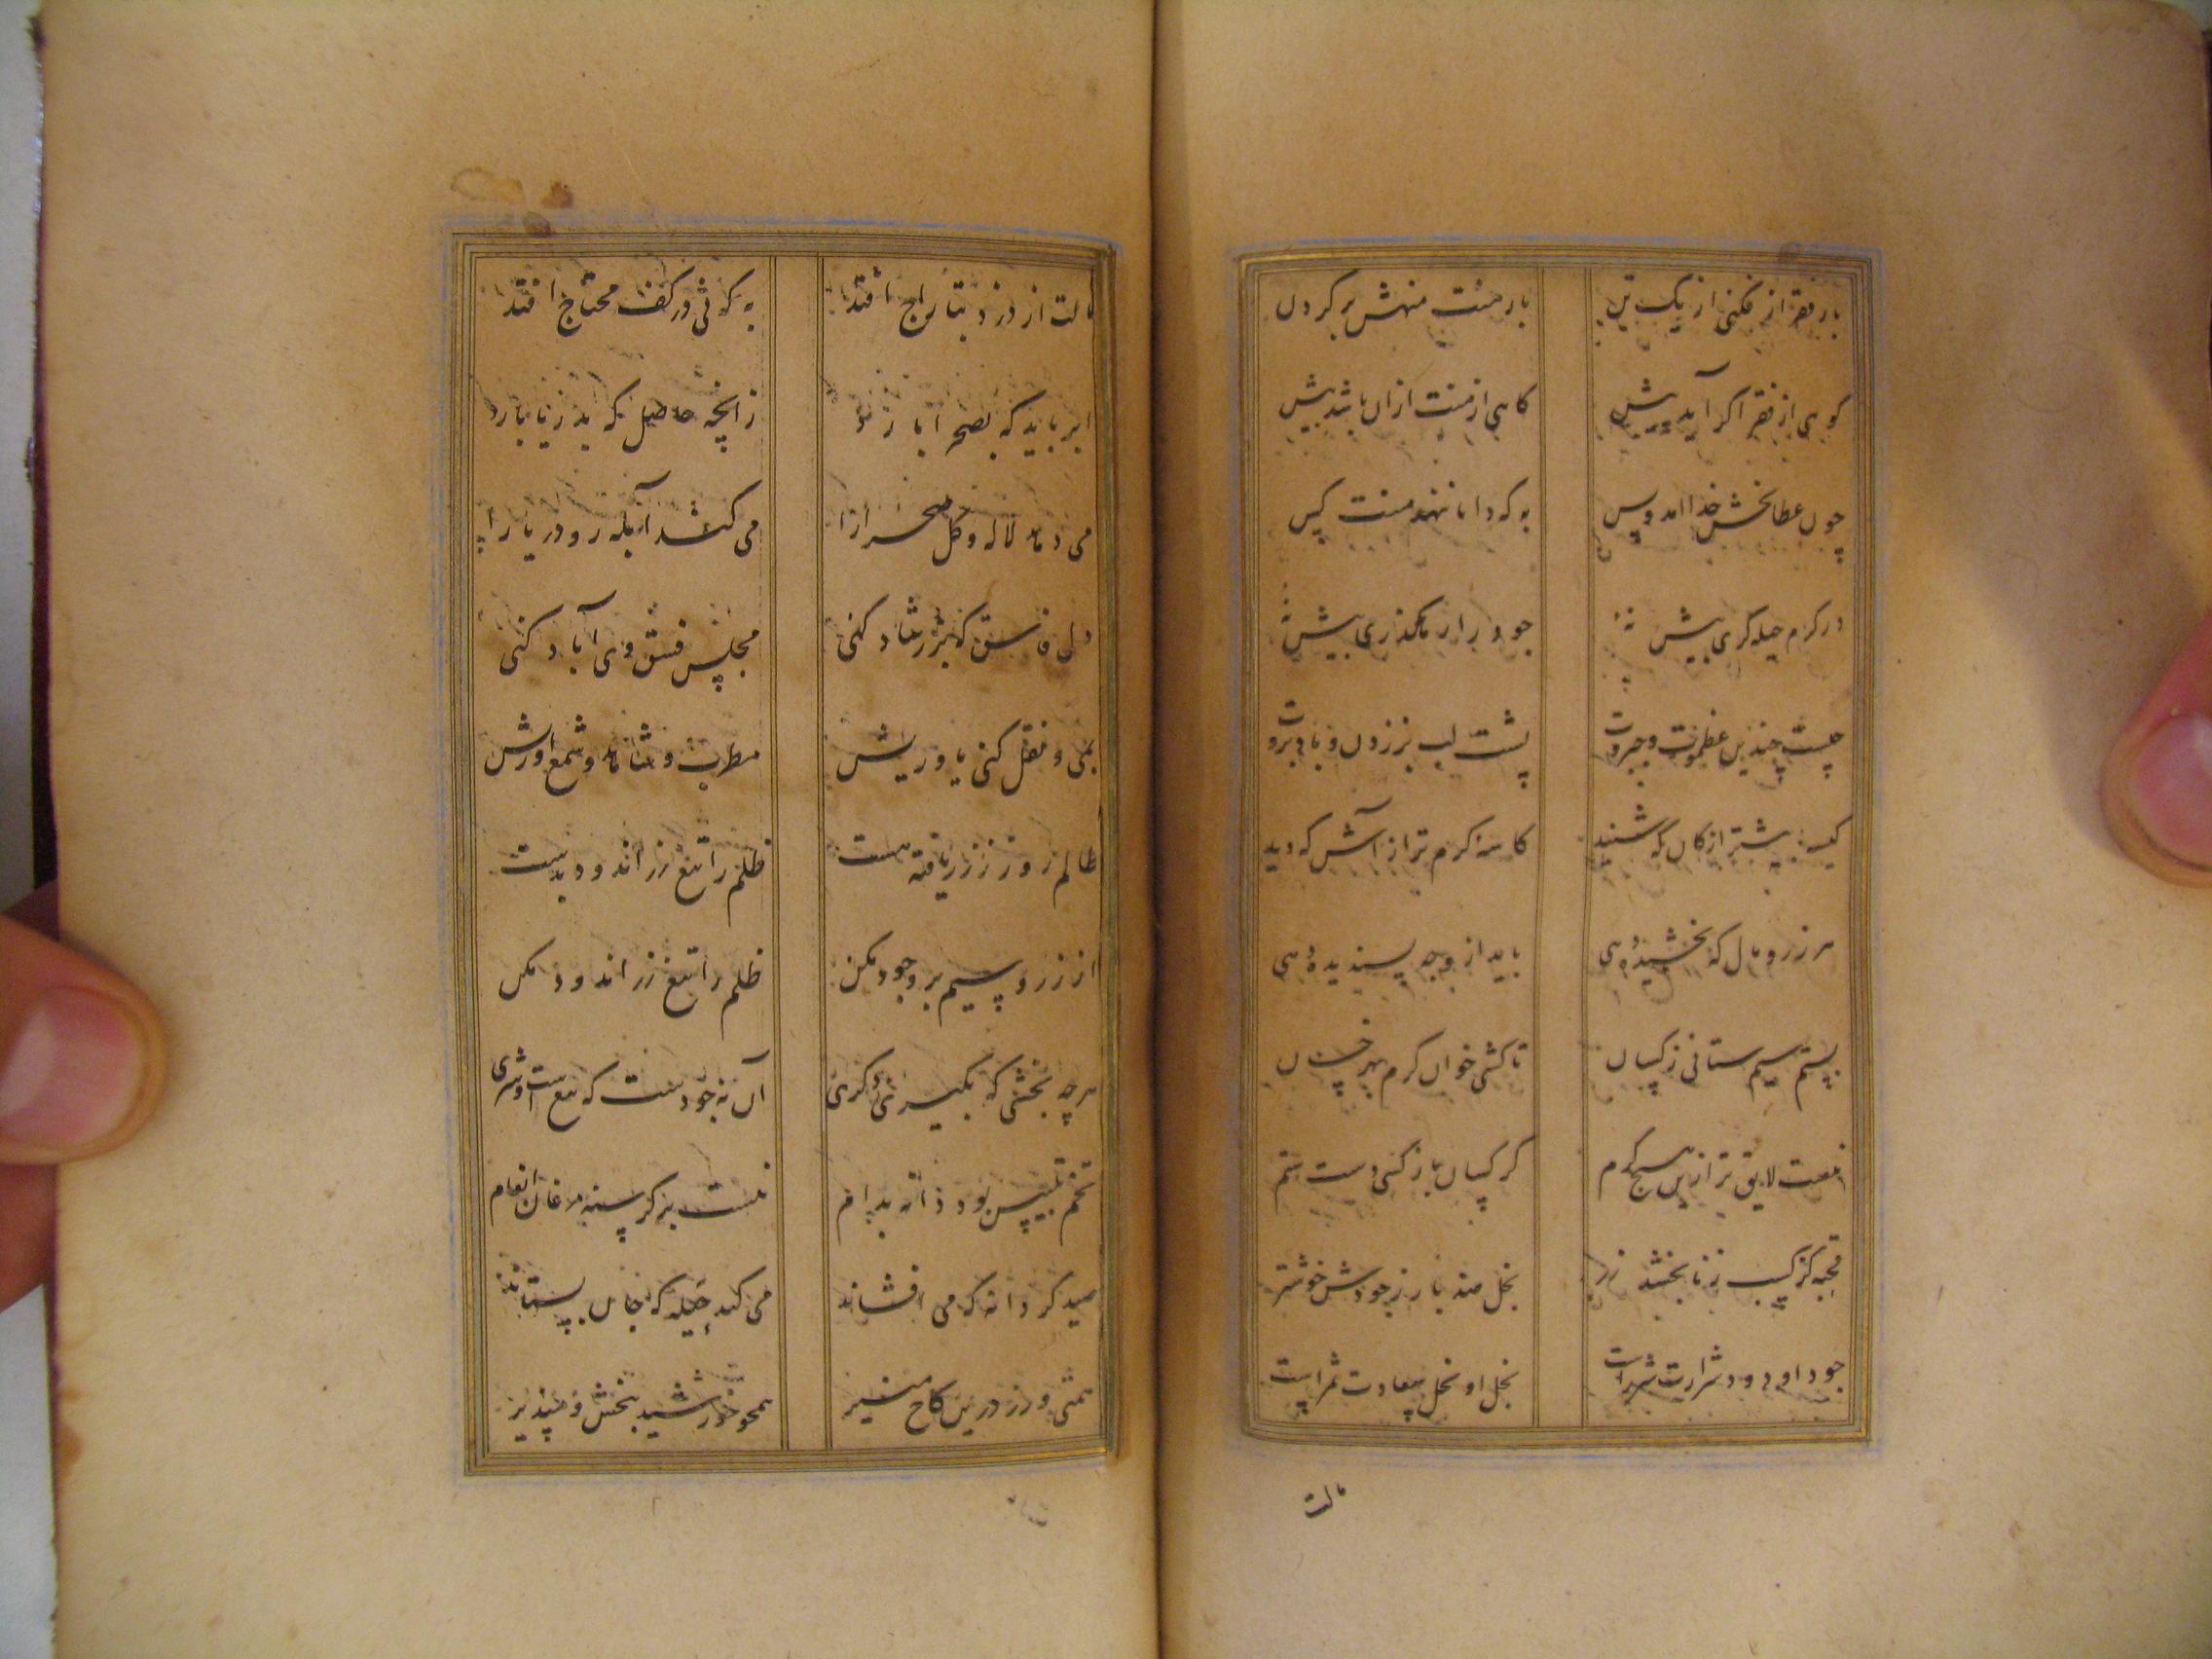 بار فقر از فکنی از یک تن بار منت منهش بر کردن
کوهی از فقر اکر آید پیش کاهی از منت ازان باشد بیش
چون عطابخش خدا آمد و بس به که دانا ننهد منت کس
در کرم حیله کری پیشه جود را راهکذری بیش نه
چیست چندین عظموت و جبروت پشت لب بر زدن و باد بروت
کیسه بیشتر از کان که شنید کاسه کرم تر از آش که دید
هر زر و مال که بخشیده دهی باید از وجه پسندیده دهی
بستم سیم ستانی ز کسان تا کشی خوان کرم بهر خسان
نیست لایق تر ازین هیچ کرم کر کسان باز کنی دست ستم
قحبه کز کسب زنا بخشد زر بخل صد بار ز جودش خوشتر
جود او دود شرارت شررست بخل او نخل سعادت ثمرست
مالت
مالت از دزد بتاراج افتد به که نی در کف محتاج افتد
ابر باید که بصحرا بارد زانچه حاصل که بدریا بارد
می دماند لاله و کل صحرا را می کشد آبله رو دریا را
دل فاسق که بزر شاد کنی مجلس فسق وی آباد کنی
بمی و نقل کنی یاوریش مطرب و شاهد و شمع آوریش
ظالم زو زر یافته دست ظلم را تیغ زر اندود بدست
از زر و سیم برو جود مکن ظلم را تیغ زر اندود مکن
هر چه بخشی که بکیری آن نه جودست که بیع است و شری
تخم تلبیس بود دانه بدام نیست بر کرسنه مرغان انعام
صید کر دانه که می افشاند می کند حیله که جان بستاند
درین کاخ همچو خورشید ببخش و مپذیر